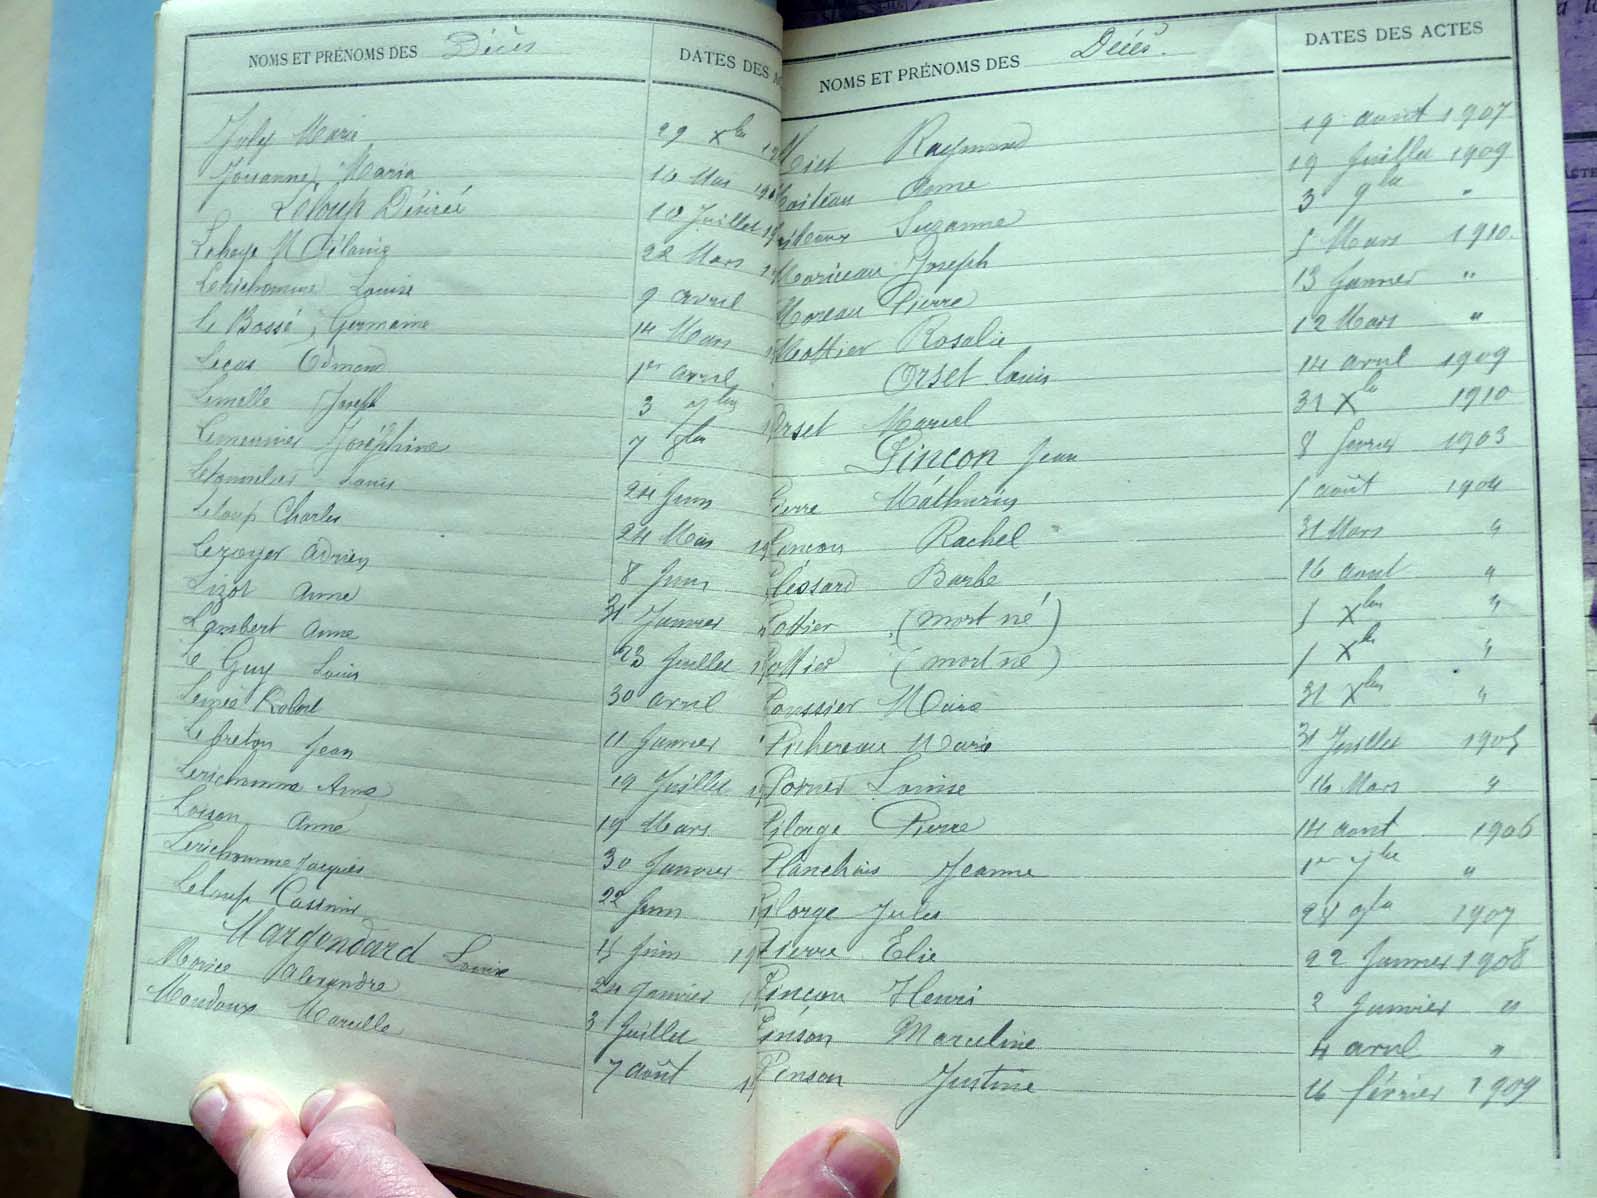 NOMS ET PRÉNOMS DES Décès DATES DES
Joly Marie 29 Xbre
Jouanne Maria 10 Mai
Leloup Désirée 10 Juillet
Lehaye M Mélanie 22 Mars
Lerichomme Louise 9 avril
Le Bossé, Germaine 14 Mars
Lecas Edmond 1er avril
Lemelle Joseph 3 7bre
Lemeunier Joséphine 7 8bre
Letonnelier Louis 24 Juin
Leloup Charles 24 Mai
Lezoyer Adrien 8 Juin
Lizot Anne 31 Janvier
Lambert Anne 23 Juillet
Le Guy Louis 30 avril
Lemée Robert 11 Janvier
Lebreton Jean 19 Juillet
Lerichomme Anna 19 Mars
Loison Anne 30 Janvier
Lerichomme Jacques 22 Juin
Leloup Casimir 15 Juin
Margondard Louise 24 Janvier
Morice Alexandre 3 Juillet
Moudoux Marcelle 7 août
NOMS ET PRÉNOMS DES Décès. DATES DES ACTES
Raymond 19 août 1907
Anne 19 Juillet 1909
Suzanne 3 9bre "
Moriceau Joseph 5 Mars 1910
Moreau Pierre 13 Janvier "
Mottier Rosalie 12 Mars "
Orset Louis 14 avril 1909
Orset Marcel 31 Xbre 1910
Pinçon Jean 8 Février 1903
Pierre Mathurin 1 août 1904
Pinçon Rachel 31 Mars "
Plessard Barbe 16 août "
Pottier (mort né) 5 Xbre "
Pottier (mort né) 1 Xbre "
Poussier Marie 31 Xbre "
Pichereau Marie 31 Juillet 1905
Poirier Louise 16 Mars "
Pilorge Pierre 14 août 1906
Planchais Jeanne 1er 7bre "
Pilorge Jules 28 9bre 1907
Pierre Élie 22 Janvier 1908
Pinçon Henri 2 Janvier "
Pinson Marceline 4 avril "
Pinson Justine 16 février 1909